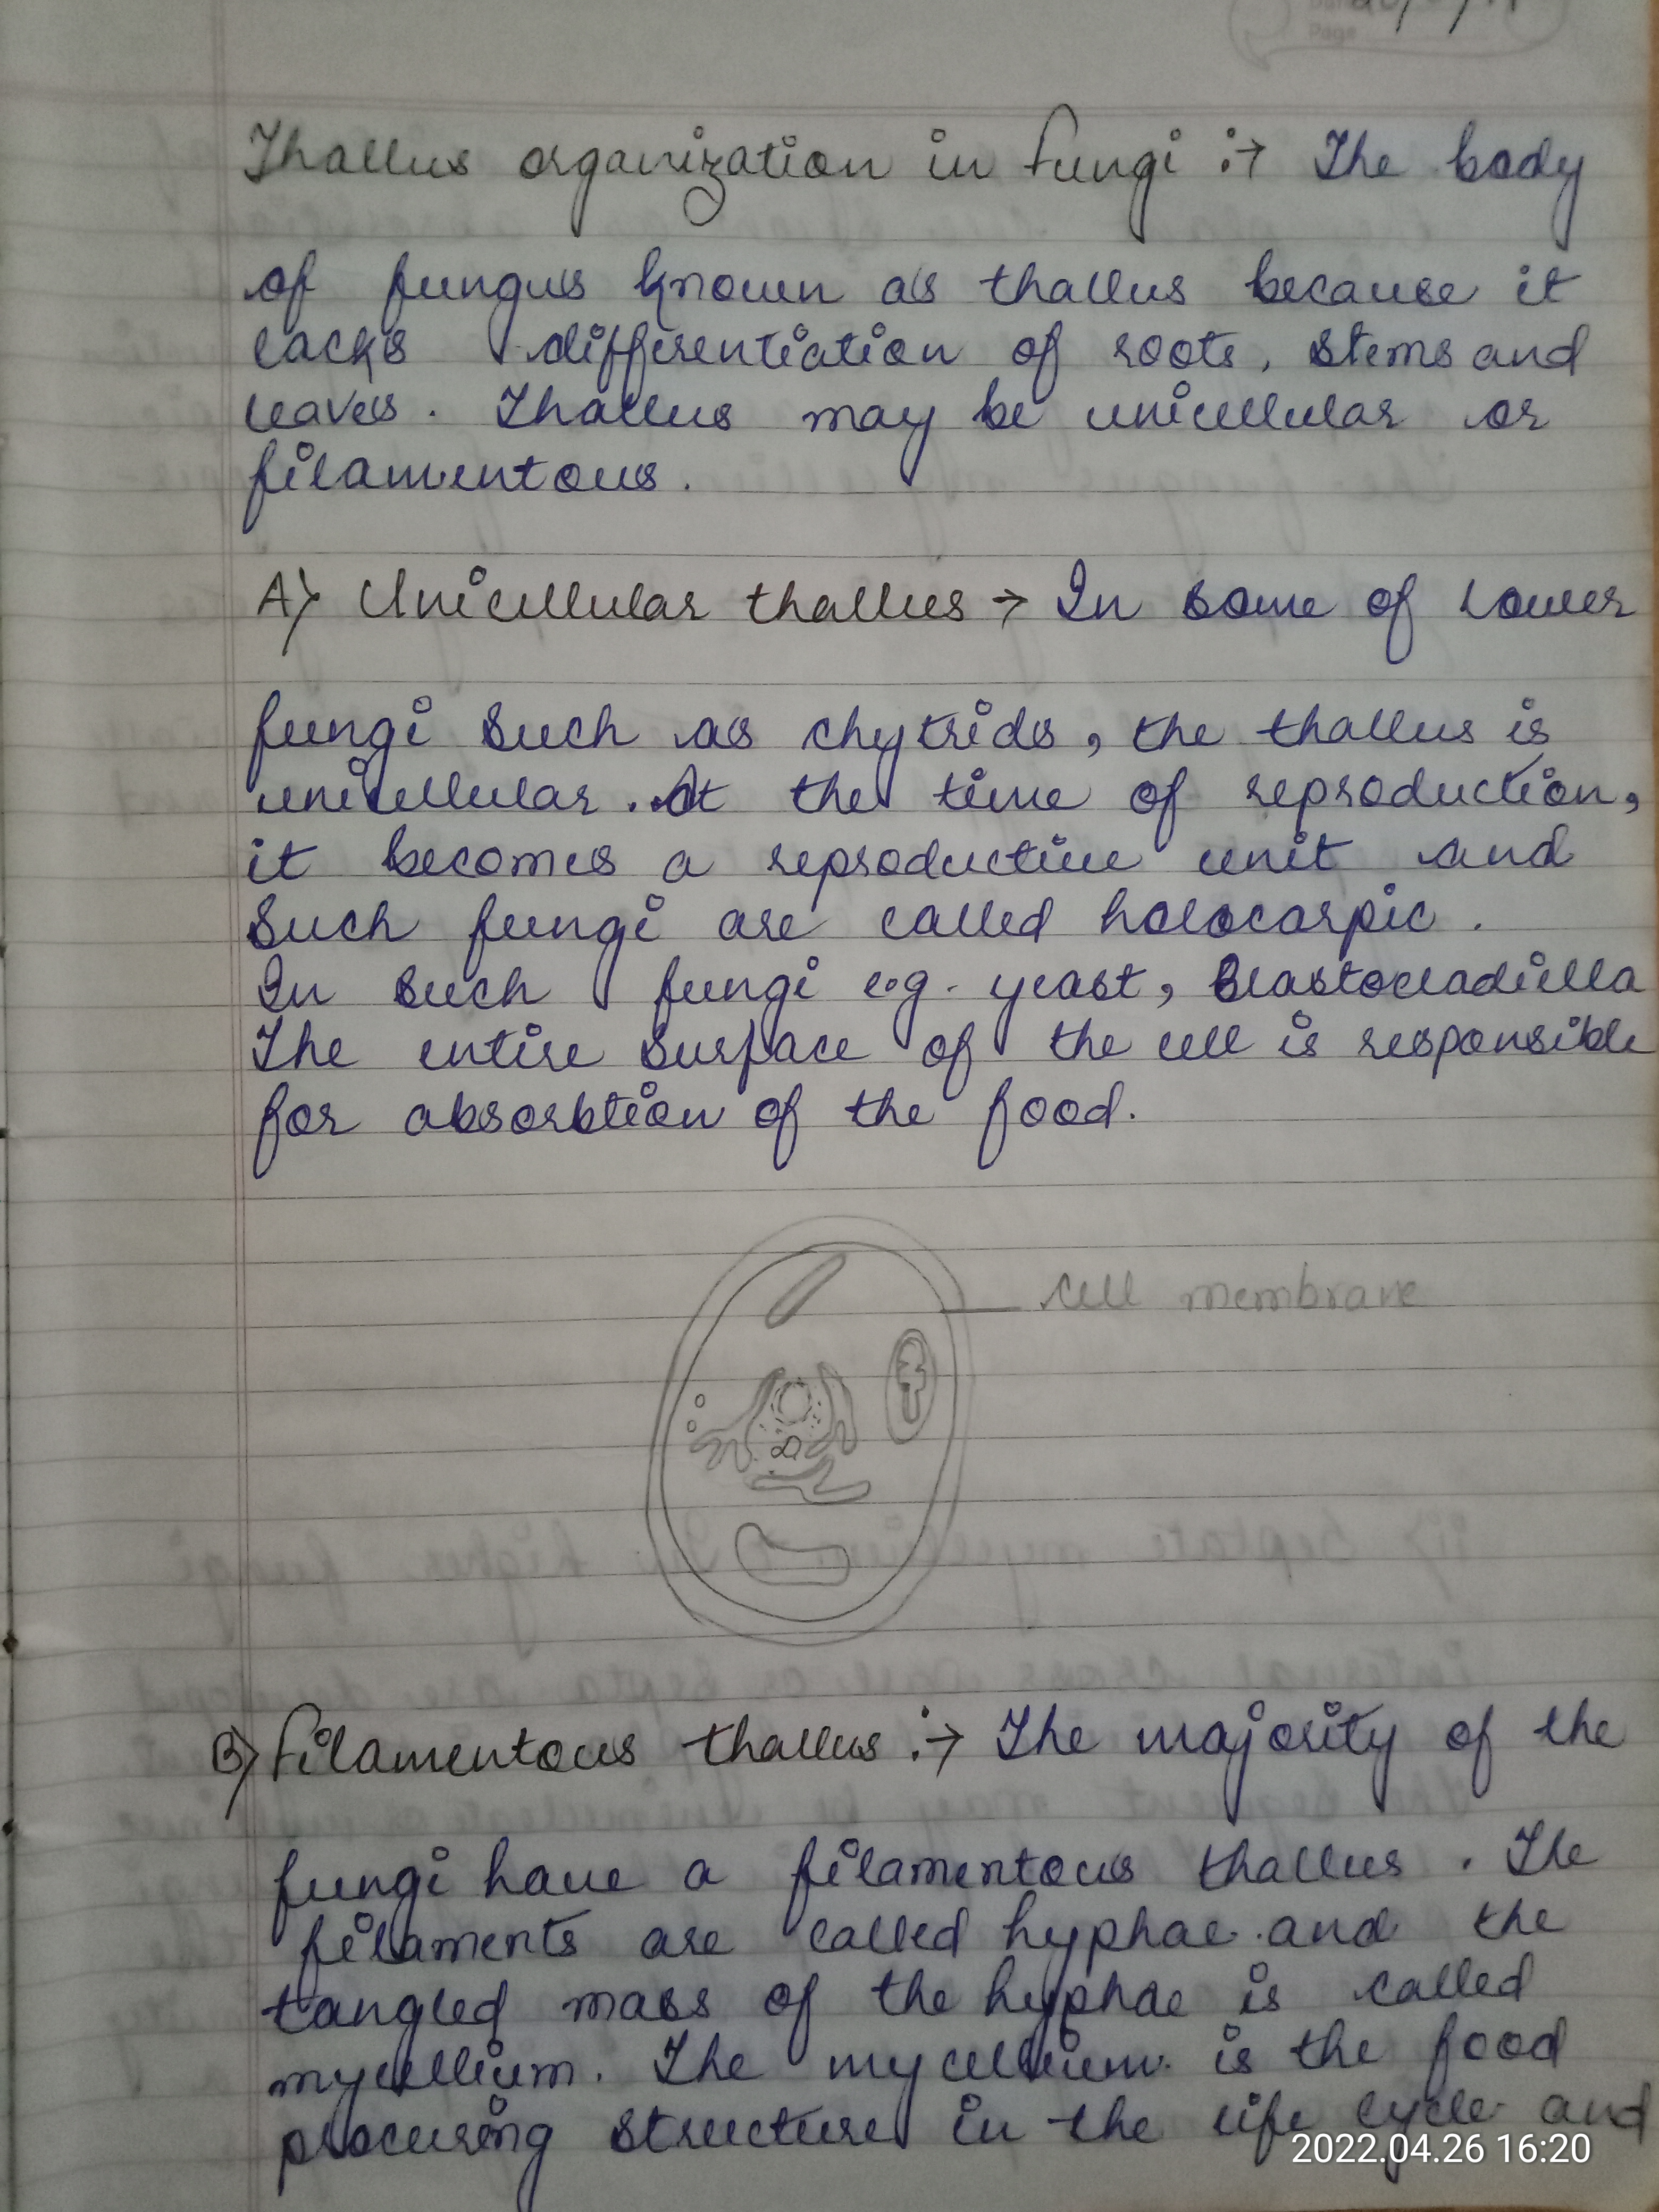 Page
Thallus organization in fungi :→ The body
of fungus known as thallus because it
lacks differentiation of roots, stems and
leaves. Thallus may be unicellular or
filamentous.
A) Unicellular thallus → In some of lower
fungi such as chytrids, the thallus is
unicellular. At the time of reproduction,
it becomes a reproductive unit and
Such fungi are called holocarpic.
In such fungi e.g. yeast, Blastocladiella
The entire surface of the cell is responsible
for absorbtion of the food.
cell membrane
B) filamentous thallus :→ The majority of the
fungi have a filamentous thallus. The
filaments are called hyphae and the
tangled mass of the hyphae is called
mycellium. The mycellium is the food
procuring structure in the life cycle and
2022.04.26 16:20